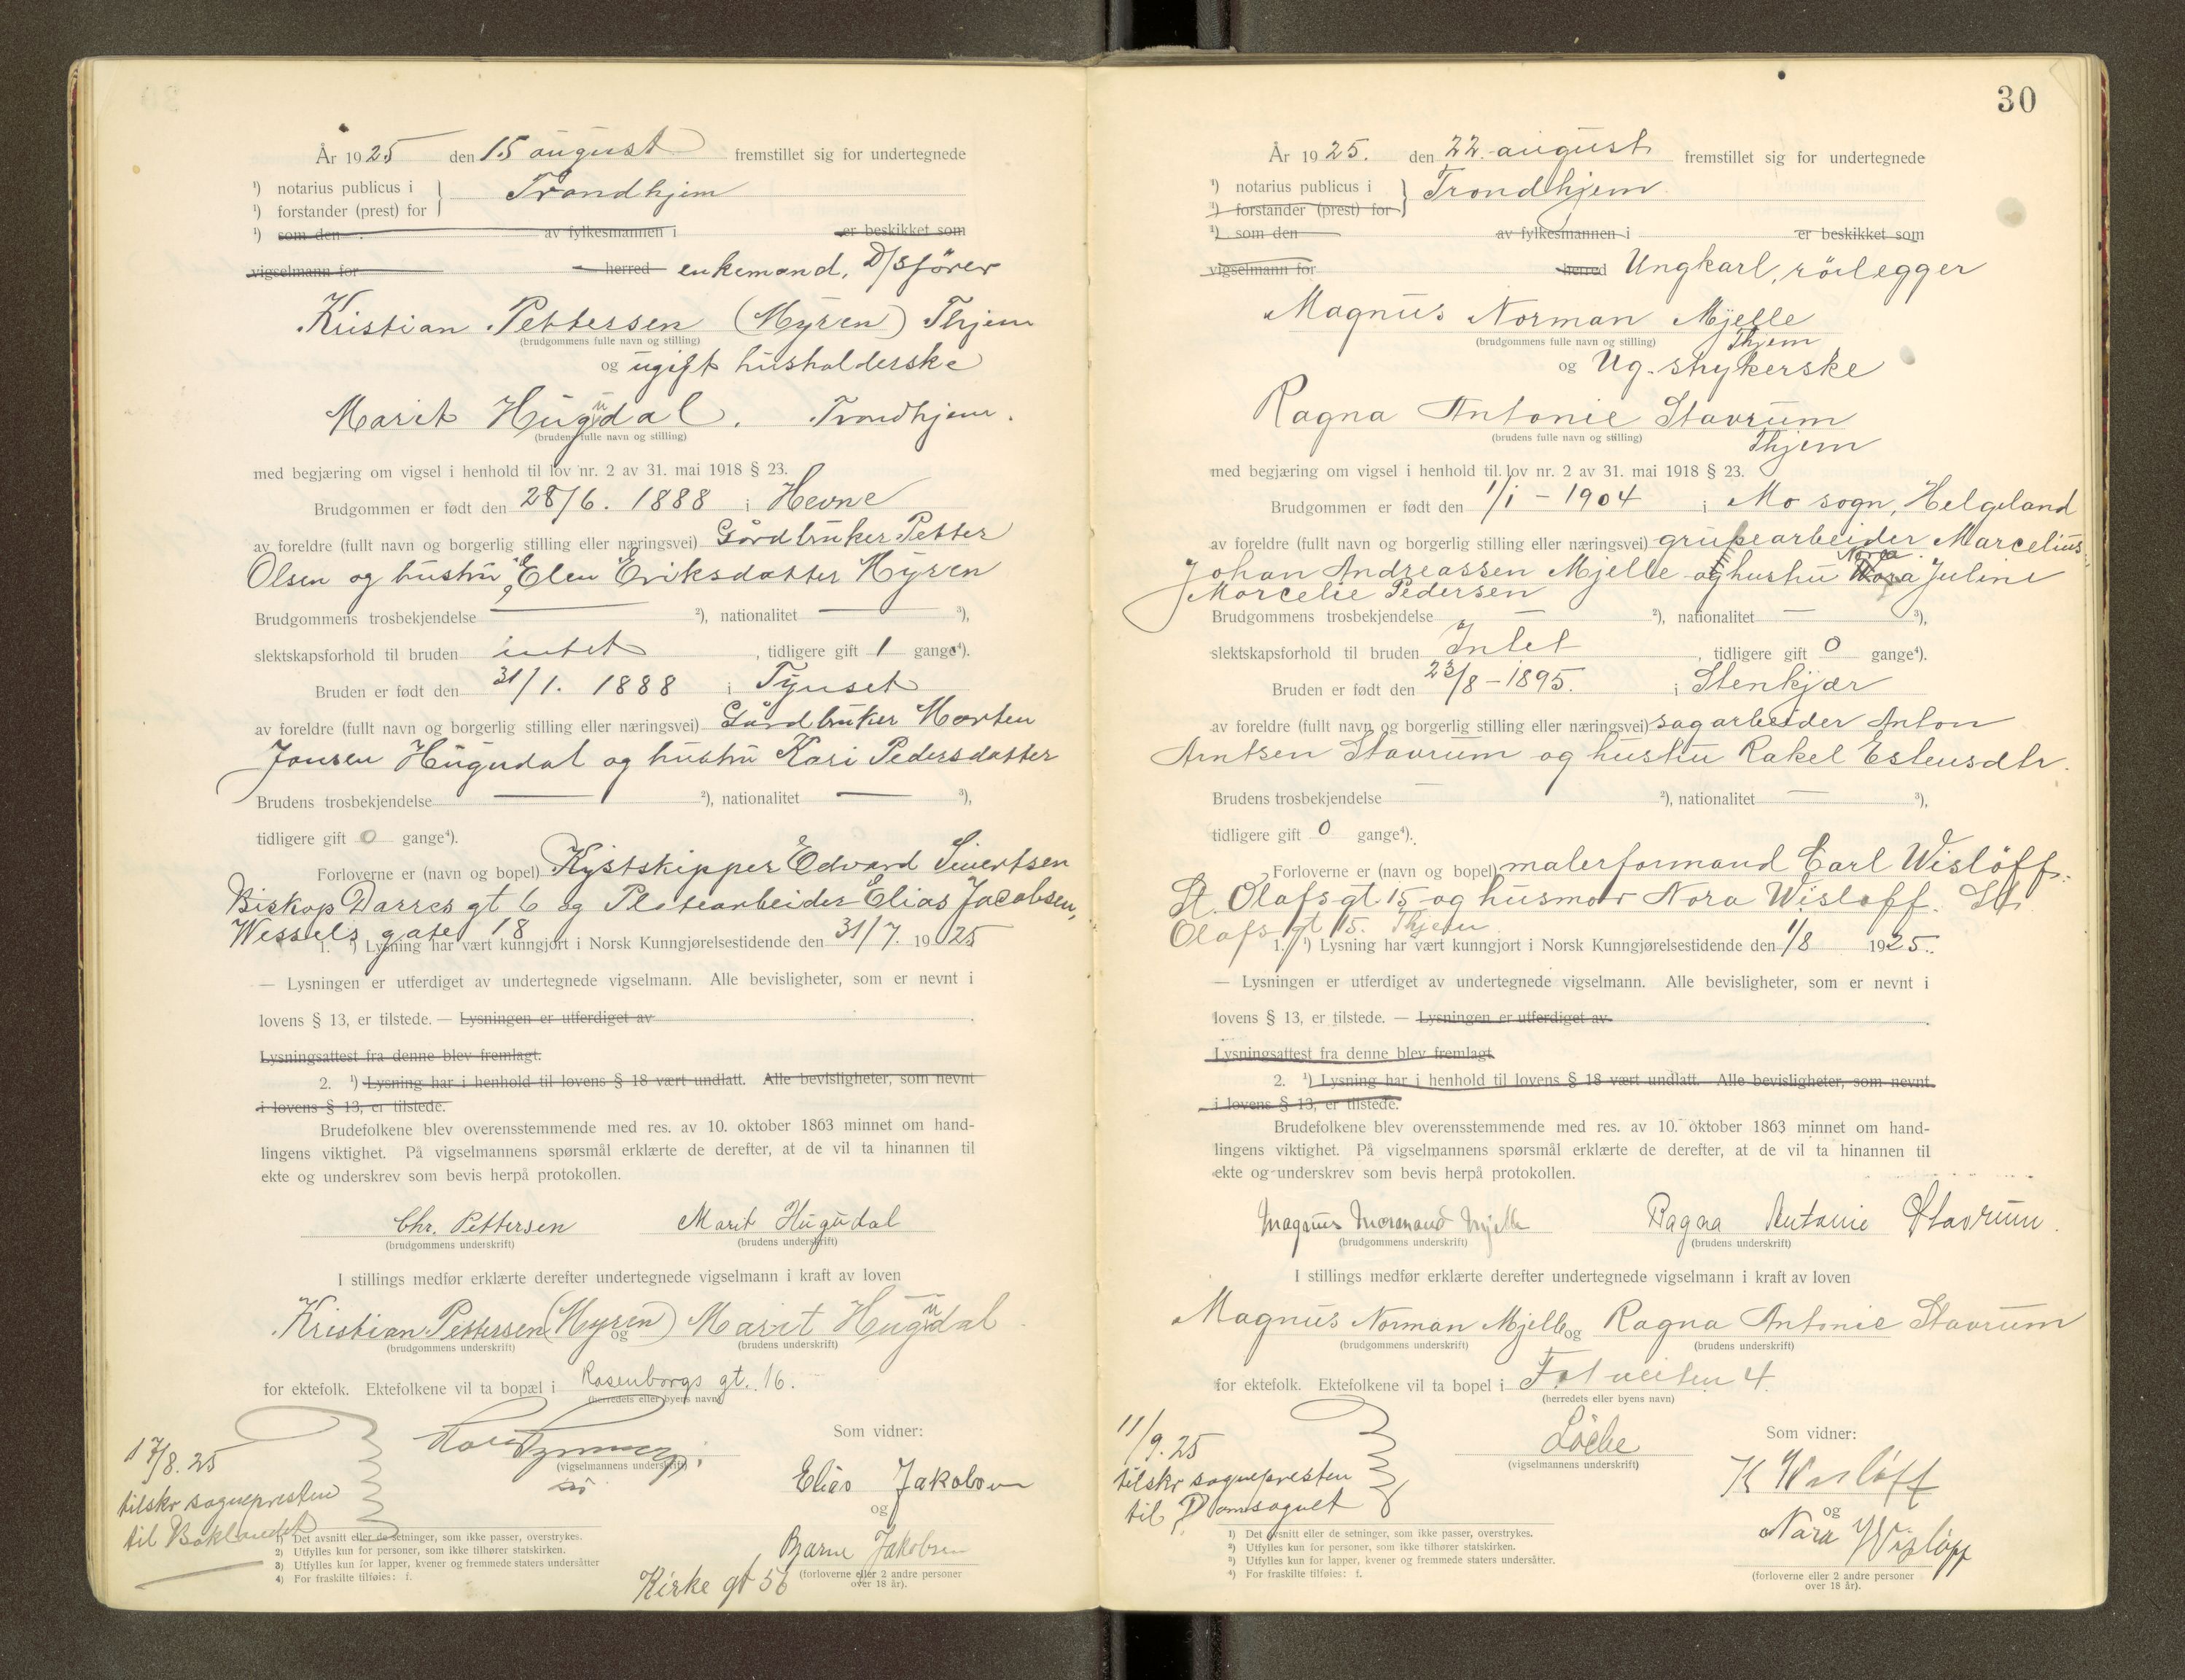 År 1925 den 15 august fremstillet sig for undertegnede
¹) notarius publicus i } Trondhjem
¹) forstander (prest) for
¹) som den av fylkesmannen i er beskikket som
vigselmann for herred enkemand, D/S fører
Kristian Pettersen (Myren) Thjem
(brudgommens fulle navn og stilling)
og ugift husholderske
Marit Hugudal. Trondhjem.
(brudens fulle navn og stilling)
med begjæring om vigsel i henhold til lov nr. 2 av 31. mai 1918 § 23.
Brudgommen er født den 28/6. 1888 i Hevne
av foreldre (fullt navn og borgerlig stilling eller næringsvei) Gårdbruker Petter
Olsen og hustru Elen Eriksdatter Myren
Brudgommens trosbekjendelse — ²), nationalitet — ³),
slektskapsforhold til bruden intet, tidligere gift 1 gange⁴).
Bruden er født den 31/1. 1888 i Tynset
av foreldre (fullt navn og borgerlig stilling eller næringsvei) Gårdbruker Morten
Jonsen Hugudal og hustru Kari Pedersdatter
Brudens trosbekjendelse — ²), nationalitet — ³),
tidligere gift 0 gange⁴).
Forloverne er (navn og bopel) Kystskipper Edvard Sivertsen
Biskop Darres gt 6 og Platearbeider Elias Jacobsen,
Wessels gate 18
1. ¹) Lysning har vært kunngjort i Norsk Kunngjørelsestidende den 31/7. 1925
— Lysningen er utferdiget av undertegnede vigselmann. Alle bevisligheter, som er nevnt i
lovens § 13, er tilstede. — Lysningen er utferdiget av
Lysningsattest fra denne blev fremlagt.
2. ¹) Lysning har i henhold til lovens § 18 vært undlatt. Alle bevisligheter, som nevnt
i lovens § 13, er tilstede.
Brudefolkene blev overensstemmende med res. av 10. oktober 1863 minnet om hand-
lingens viktighet. På vigselmannens spørsmål erklærte de derefter, at de vil ta hinannen til
ekte og underskrev som bevis herpå protokollen.
Chr. Pettersen Marit Hugudal
(brudgommens underskrift) (brudens underskrift)
I stillings medfør erklærte derefter undertegnede vigselmann i kraft av loven
Kristian Pettersen (Myren) og Marit Hugudal
(brudgommens underskrift) (brudens underskrift)
for ektefolk. Ektefolkene vil ta bopæl i Rosenborgs gt. 16.
(herredets eller byens navn)
Som vidner:
(vigselmannens underskrift)
Elias Jakobsen
og
Bjarne Jakobsen
Kirke gt 56
(forloverne eller 2 andre personer
over 18 år).
17/8. 25
tilskr sognepresten
til Baklandet
1) Det avsnitt eller de setninger, som ikke passer, overstrykes.
2) Utfylles kun for personer, som ikke tilhører statskirken.
3) Utfylles kun for lapper, kvener og fremmede staters undersåtter
4) For fraskilte tilføies: f.
30
År 1925. den 22. august fremstillet sig for undertegnede
¹) notarius publicus i } Trondhjem
¹) forstander (prest) for
¹) som den av fylkesmannen i er beskikket som
vigselmann for herred Ungkarl, rörlegger
Magnus Norman Mjelle
(brudgommens fulle navn og stilling) Thjem
og Ug. strykerske
Ragna Antonie Stavrum
(brudens fulle navn og stilling) Thjem
med begjæring om vigsel i henhold til lov nr. 2 av 31. mai 1918 § 23.
Brudgommen er født den 1/1 - 1904 i Mo sogn, Helgeland
av foreldre (fullt navn og borgerlig stilling eller næringsvei) grubearbeider Marcelius
Johan Andreassen Mjelle og hustru Nora Juline
Marcelie Pedersen
Brudgommens trosbekjendelse — ²), nationalitet — ³),
slektskapsforhold til bruden Intet, tidligere gift 0 gange⁴).
Bruden er født den 23/8 - 1895. i Stenkjær
av foreldre (fullt navn og borgerlig stilling eller næringsvei) sagarbeider Anton
Arntsen Stavrum og hustru Rakel Estensdtr.
Brudens trosbekjendelse — ²), nationalitet — ³),
tidligere gift 0 gange⁴).
Forloverne er (navn og bopel) malerformand Carl Wislöff.
St. Olafs gt 15 og husmor Nora Wisloff. St.
Olafs gt 15. Thjem
1. ¹) Lysning har vært kunngjort i Norsk Kunngjørelsestidende den 1/8 1925.
— Lysningen er utferdiget av undertegnede vigselmann. Alle bevisligheter, som er nevnt i
lovens § 13, er tilstede. — Lysningen er utferdiget av
Lysningsattest fra denne blev fremlagt
2. ¹) Lysning har i henhold til lovens § 18 vært undlatt. Alle bevisligheter, som nevnt
i lovens § 13, er tilstede.
Brudefolkene blev overensstemmende med res. av 10. oktober 1863 minnet om hand-
lingens viktighet. På vigselmannens spørsmål erklærte de derefter, at de vil ta hinannen til
ekte og underskrev som bevis herpå protokollen.
Magnus Normand Mjelle Ragna Antonie Stavrum.
(brudgommens underskrift) (brudens underskrift)
I stillings medfør erklærte derefter undertegnede vigselmann i kraft av loven
Magnus Norman Mjelle og Ragna Antonie Stavrum
(brudgommens underskrift) (brudens underskrift)
for ektefolk. Ektefolkene vil ta bopel i 4.
(herredets eller byens navn)
Som vidner:
(vigselmannens underskrift)
K Wisløff
og
Nora Wisløff
(forloverne eller 2 andre personer
over 18 år).
11/9. 25
tilskr sognepresten
til Domsognet
1) Det avsnitt eller de setninger, som ikke passer, overstrykes.
2) Utfylles kun for personer, som ikke tilhører statskirken.
3) Utfylles kun for lapper, kvener og fremmede staters undersåtter.
4) For fraskilte tilføies: f.